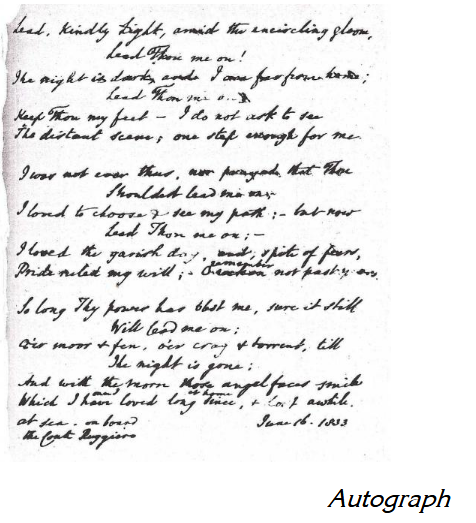 Lead, Kindly Light, amid the encircling gloom,
Lead Thou me on!
The night is dark, and I am far from home;
Lead Thou me on
Keep Thou my feet – I do not ask to see
The distant scene; one step enough for me.
I was not ever thus, nor prayed that Thou
Shouldst lead me on;
I loved to choose & see my path; – but now
Lead Thou me on; –
I loved the garish day, and, spite of fears,
Pride ruled my will; – remember not past years.
So long Thy power has blest me, sure it still
Will lead me on;
O'er moor & fen, o'er crag & torrent, till
The night is gone;
And with the morn those angel faces smile
Which I have loved long since, & lost awhile.
at sea. on board
the Conte Ruggiero
June 16. 1833
Autograph